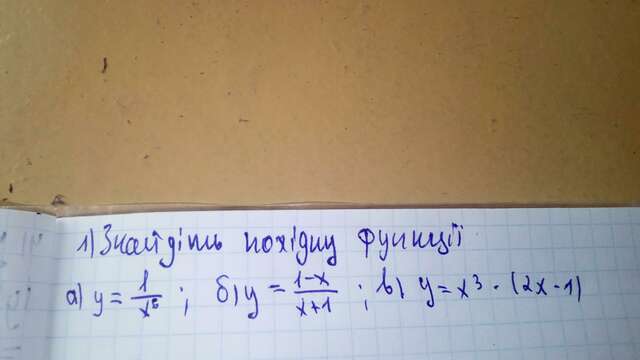 1) Знайдіть похідну функції
а) y = 1/x⁵ ; б) y = 1-x/x+1 ; в) y = x³ · (2x - 1)